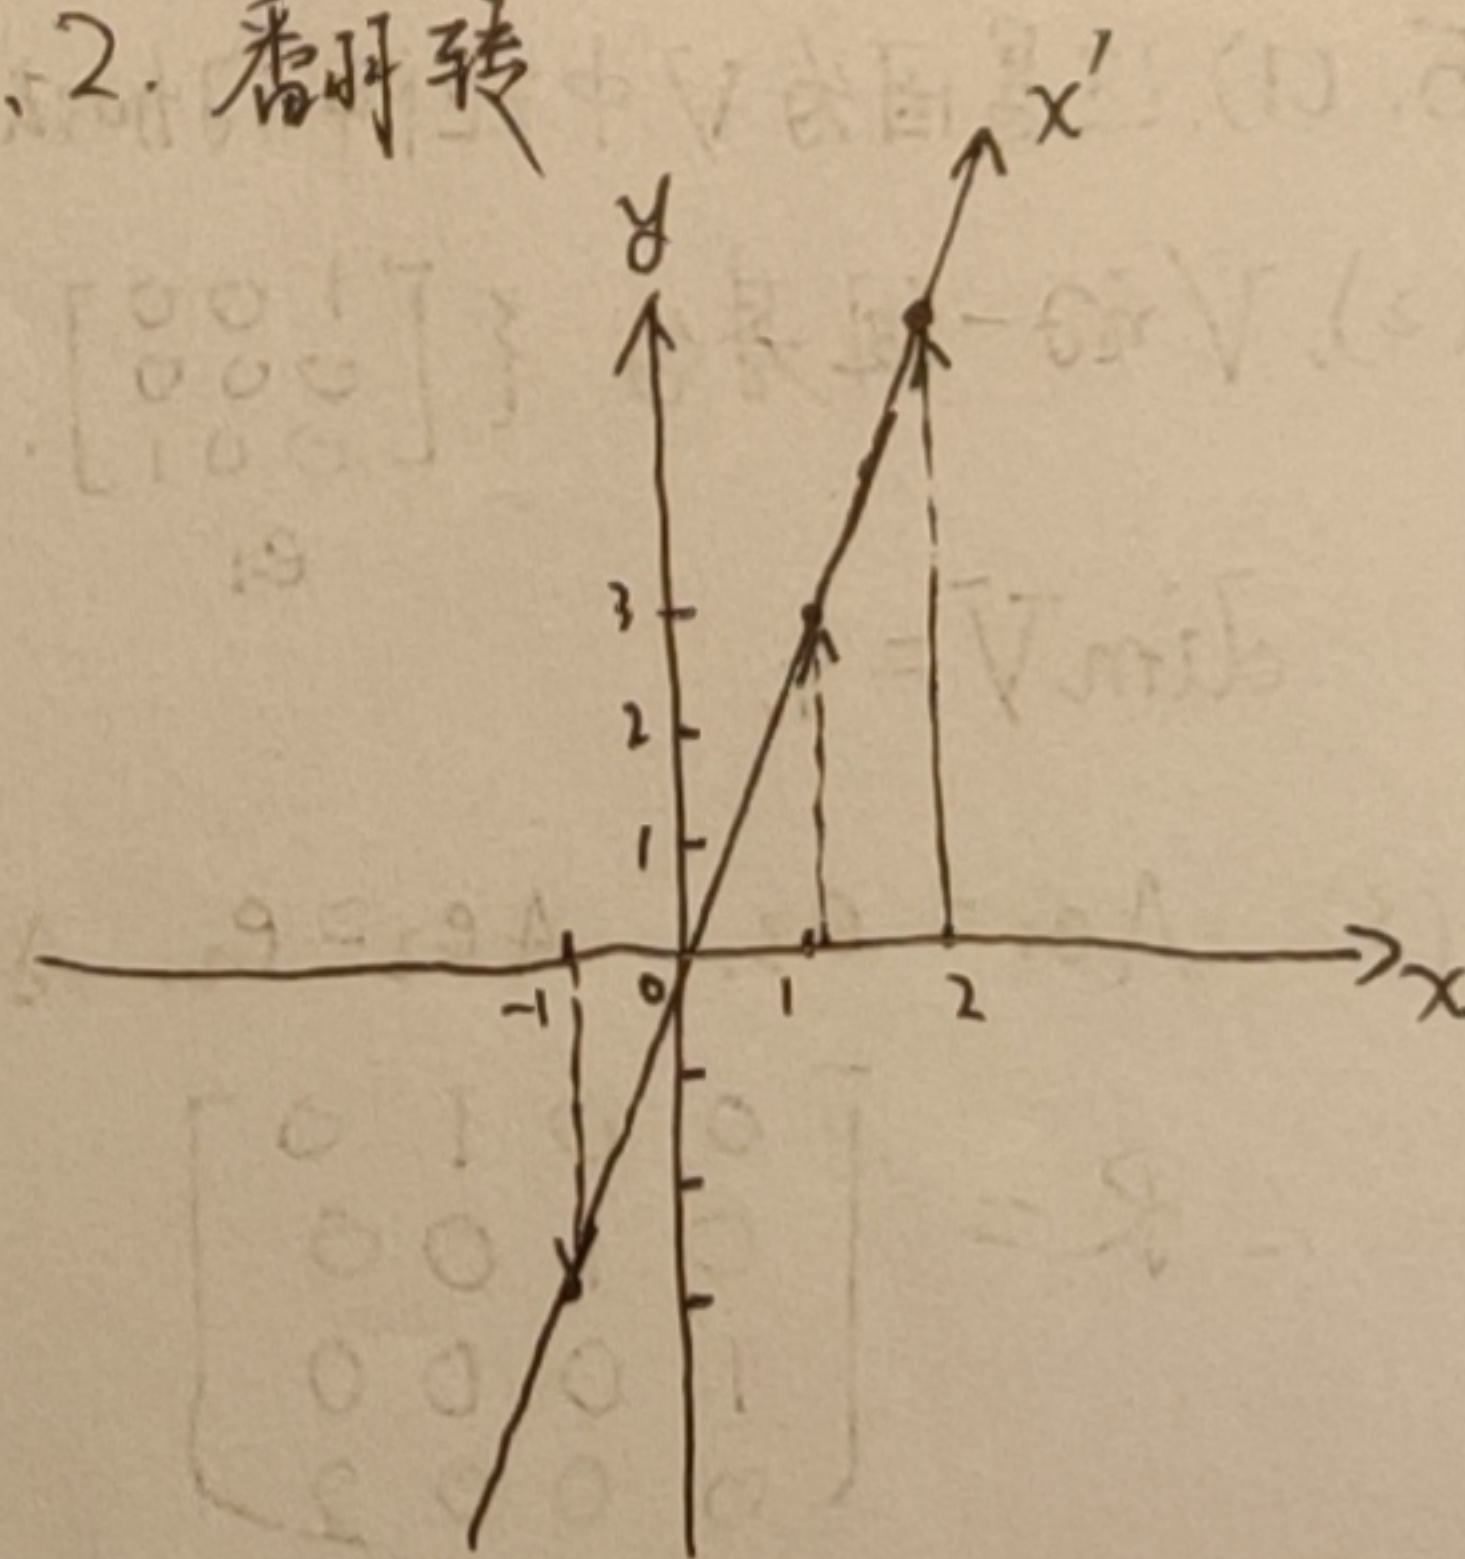 2. 翻转
x'
y
3
2
1
-1 0 1 2 x